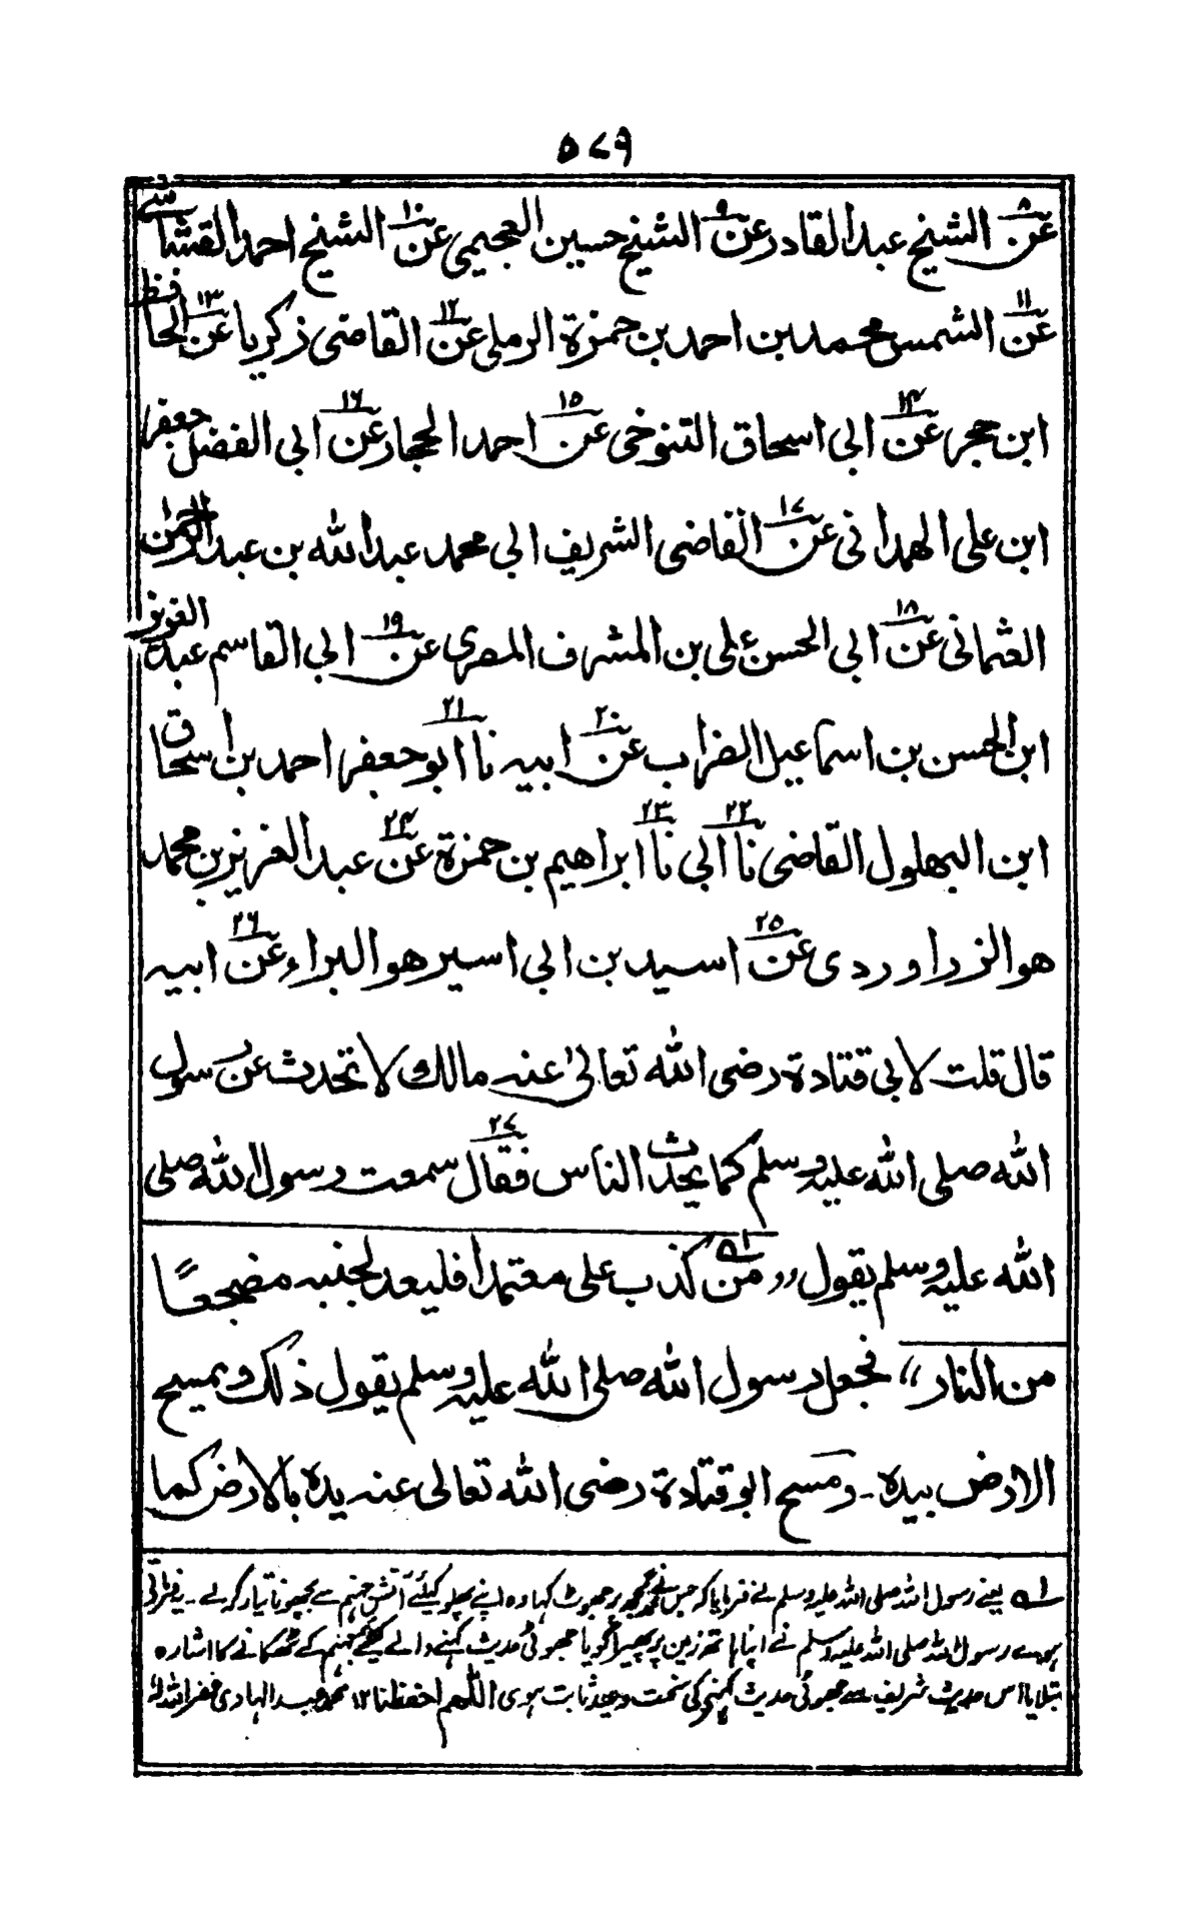 ۵۷۹
عن۸ الشیخ عبد القادر عن۹ الشیخ حسین العجیمی عن۱۰ الشیخ احمد القشاشی
عن۱۱ الشمس محمد بن احمد بن حمزة الرملی عن۱۲ القاضی زکریا عن۱۳ الحافظ
ابن حجر عن۱۴ ابی اسحاق التنوخی عن۱۵ احمد الحجار عن۱۶ ابی الفضل جعفر
ابن علی الهمدانی عن۱۷ القاضی الشریف ابی محمد عبد الله بن عبد الرحمن
العثمانی عن۱۸ ابی الحسن علی بن المشرف المصری عن۱۹ ابی القاسم عبد العزیز
ابن الحسن بن اسماعیل الضراب عن۲۰ ابیه نا۲۱ ابو جعفر احمد بن اسحاق
ابن البهلول القاضی نا۲۲ ابی نا۲۳ ابراهیم بن حمزة عن۲۴ عبد العزیز بن محمد
هو الزراوردی عن۲۵ اسید بن ابی اسیر هو البراء عن۲۶ ابیه
قال قلت لابی قتادة رضی الله تعالیٰ عنه مالک لا تحدث عن رسول
الله صلی الله علیه وسلم کما یحدث الناس فقال۲۷ سمعت رسول الله صلی
الله علیه وسلم یقول ”من۱ کذب علی معتمدا فلیعد لجنبه مضجعًا
من النار“ فجعل رسول الله صلی الله علیه وسلم یقول ذلک ویمسح
الارض بیده۔ ومسح ابو قتادة رضی الله تعالی عنه یده بالارض کما
۱ یعنے رسول اللہ صلی اللہ علیہ وسلم نے فرمایا کہ جس نے مجھ پر جھوٹ کہا وہ اپنے پہلو کیلئے آتش جہنم سے بچھونا تیار کرلے۔ یہ فرماتی
رسول اللہ صلی اللہ علیہ وسلم نے اپنا ہاتھ زمین پر پھیرا گویا جھوٹی حدیث کہنے والے کیلئے جہنم کے ٹھکانے کا اشارہ
بتلایا اس حدیث شریف سے جھوٹی حدیث کہنے کی سخت وعید ثابت ہوی اللّٰھم احفظنا ۱۲ محمد عبد الہادی غفر اللہ لہ